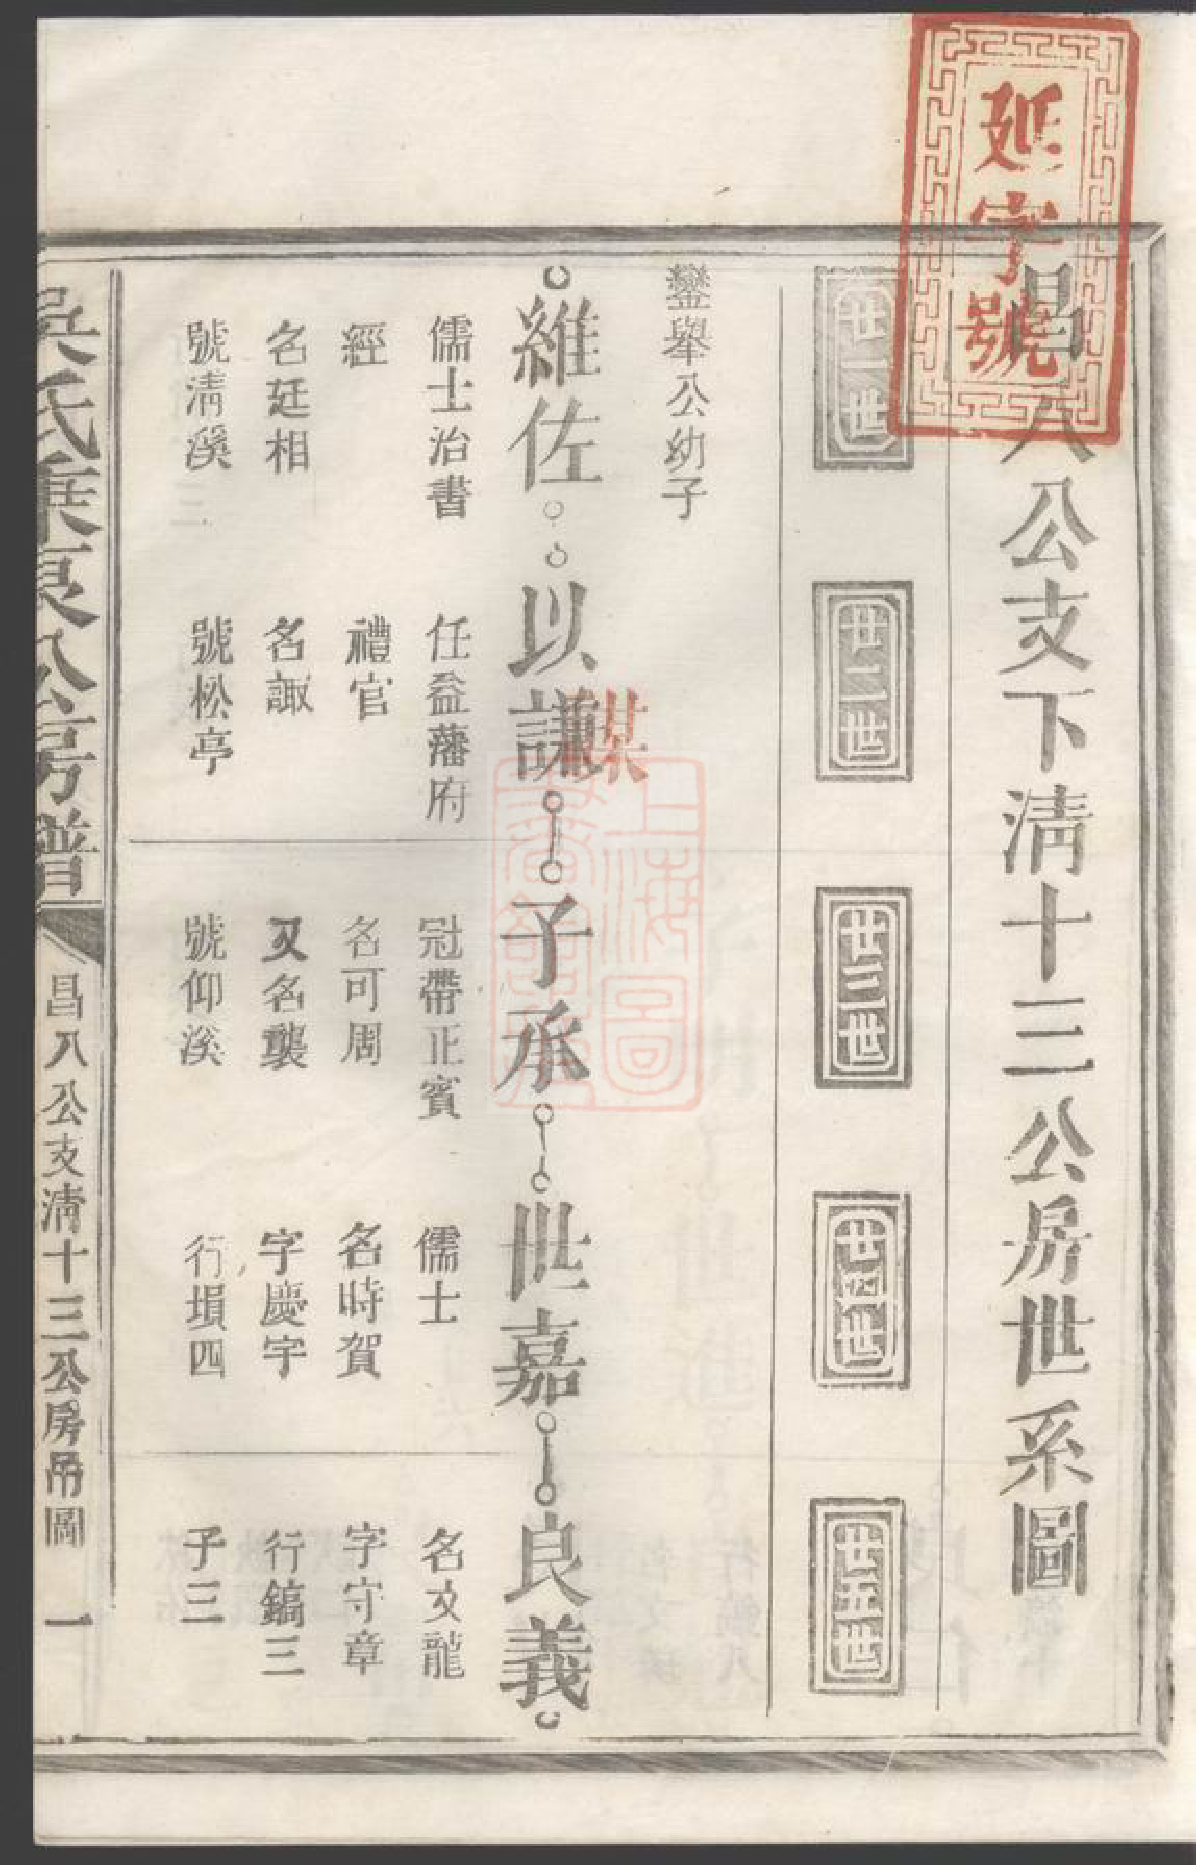 延字號
昌八公支下清十三公房世系圖
廿一世
廿二世
廿三世
廿四世
廿五世
鑾舉公幼子
維佐
以謙
謀
子承
世嘉
良義
儒士治書
經
名廷相
號清溪
任益藩府
禮官
名諏
號松亭
冠帶正賓
名可周
又名襲
號仰溪
儒士
名時賀
字慶宇
行塤四
名文龍
字守章
行鎬三
子三
上海圖
吳氏秉哀公房譜
昌八公支清十三公房吊圖 一